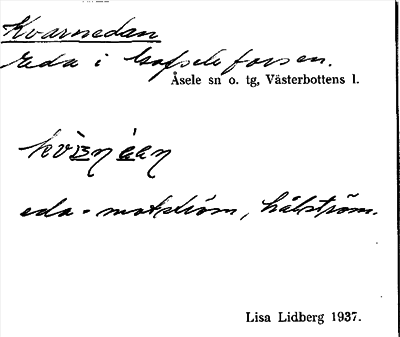 Kvarnedan
Eda i Gafsele forsen.
Åsele sn o. tg, Västerbottens l.
eda = motström, bålström.
Lisa Lidberg 1937.